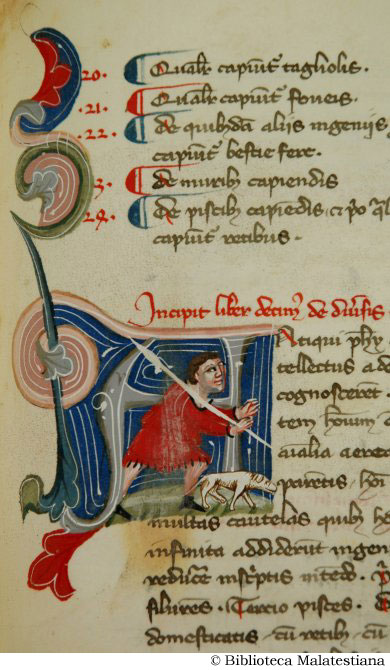 20. Qualr capiunt tagliolis.
.21. Qualr capiunt foveis.
.22. de quibdã aliis ingeniis
capiunt bestie fere.
3. de murib capiendis
24. de piscib capiẽdis, et pº
capiunt retibus.
Incipit liber decimꝰ de divsis
Atiqui phy
tellectus a de
cognosceret
tem hominum
aialia aerea
parentis hoi
multas cautelas quib
infinita addiderunt ingen
reduce in scriptis intedo.
flures. Tercio pisces.
domesticatis cu retib cu
© Biblioteca Malatestiana